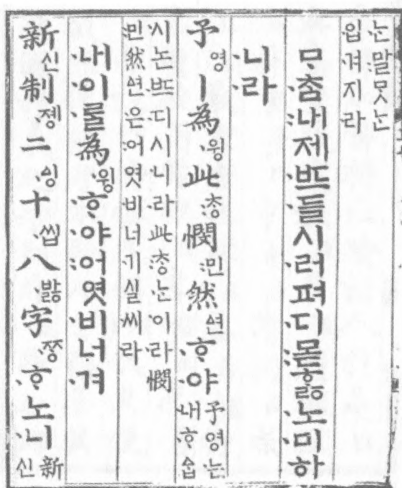 ᄂᆞᆫ말ᄆᆞᆺᄂᆞᆫ
입겨지라
ᄆᆞᄎᆞᆷ내제ᄠᅳ들시러펴디몯ᄒᆞᇙ노미하
니라
予영ㅣ為윙此ᄎᆞᆼ憫민然ᅀᅧᆫᄒᆞ야予영는
내ᄒᆞᅀᆞᆸ
시논ᄠᅳ디시니라此ᄎᆞᆼᄂᆞᆫ이라憫
민然ᅀᅧᆫ은어엿비너기실씨라
내이ᄅᆞᆯ為윙ᄒᆞ야어엿비너겨
新신制졩二ᅀᅵᆼ十씹八바ᇙ字ᄍᆞᆼᄒᆞ노니新
신